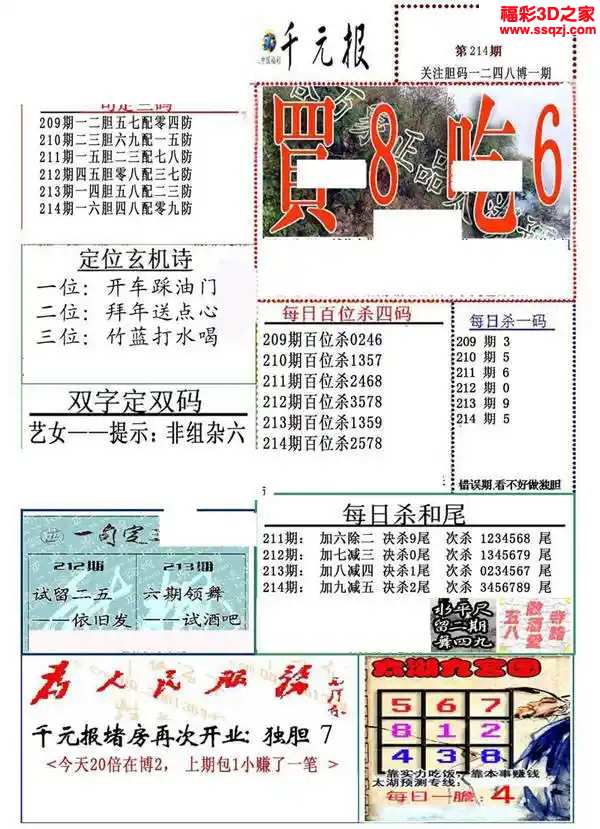 福彩3D之家
www.ssqzj.com
千元报
第214期
关注胆码一二四八博一期
209期一二胆五七配零四防
210期二三胆六九配一五防
211期一五胆二三配七八防
212期四五胆零八配三七防
213期一四胆五八配二三防
214期一六胆四八配零九防
買8吃6
定位玄机诗
一位：开车踩油门
二位：拜年送点心
三位：竹蓝打水喝
双字定双码
艺女——提示：非组杂六
每日百位杀四码
209期百位杀0246
210期百位杀1357
211期百位杀2468
212期百位杀3578
213期百位杀1359
214期百位杀2578
每日杀一码
209 期 3
210 期 5
211 期 6
212 期 0
213 期 9
214 期 5
错误期,看不好做独胆
每日杀和尾
211期： 加六除二 决杀9尾 次杀 1234568 尾
212期： 加七减三 决杀0尾 次杀 1345679 尾
213期： 加八减四 决杀1尾 次杀 0234567 尾
214期： 加九减五 决杀2尾 次杀 3456789 尾
水平尺
留二期
舞四九
一句定三
212期
试留二五
——依旧发
213期
六期领舞
——试酒吧
为人民服务
千元报堵房再次开业: 独胆 7
<今天20倍在博2， 上期包1小赚了一笔 >
太湖九宫图
5 6 7
8 1 2
4 3 8
靠实力吃饭，靠本事赚钱
太湖预测专线:
每日一胆: 4